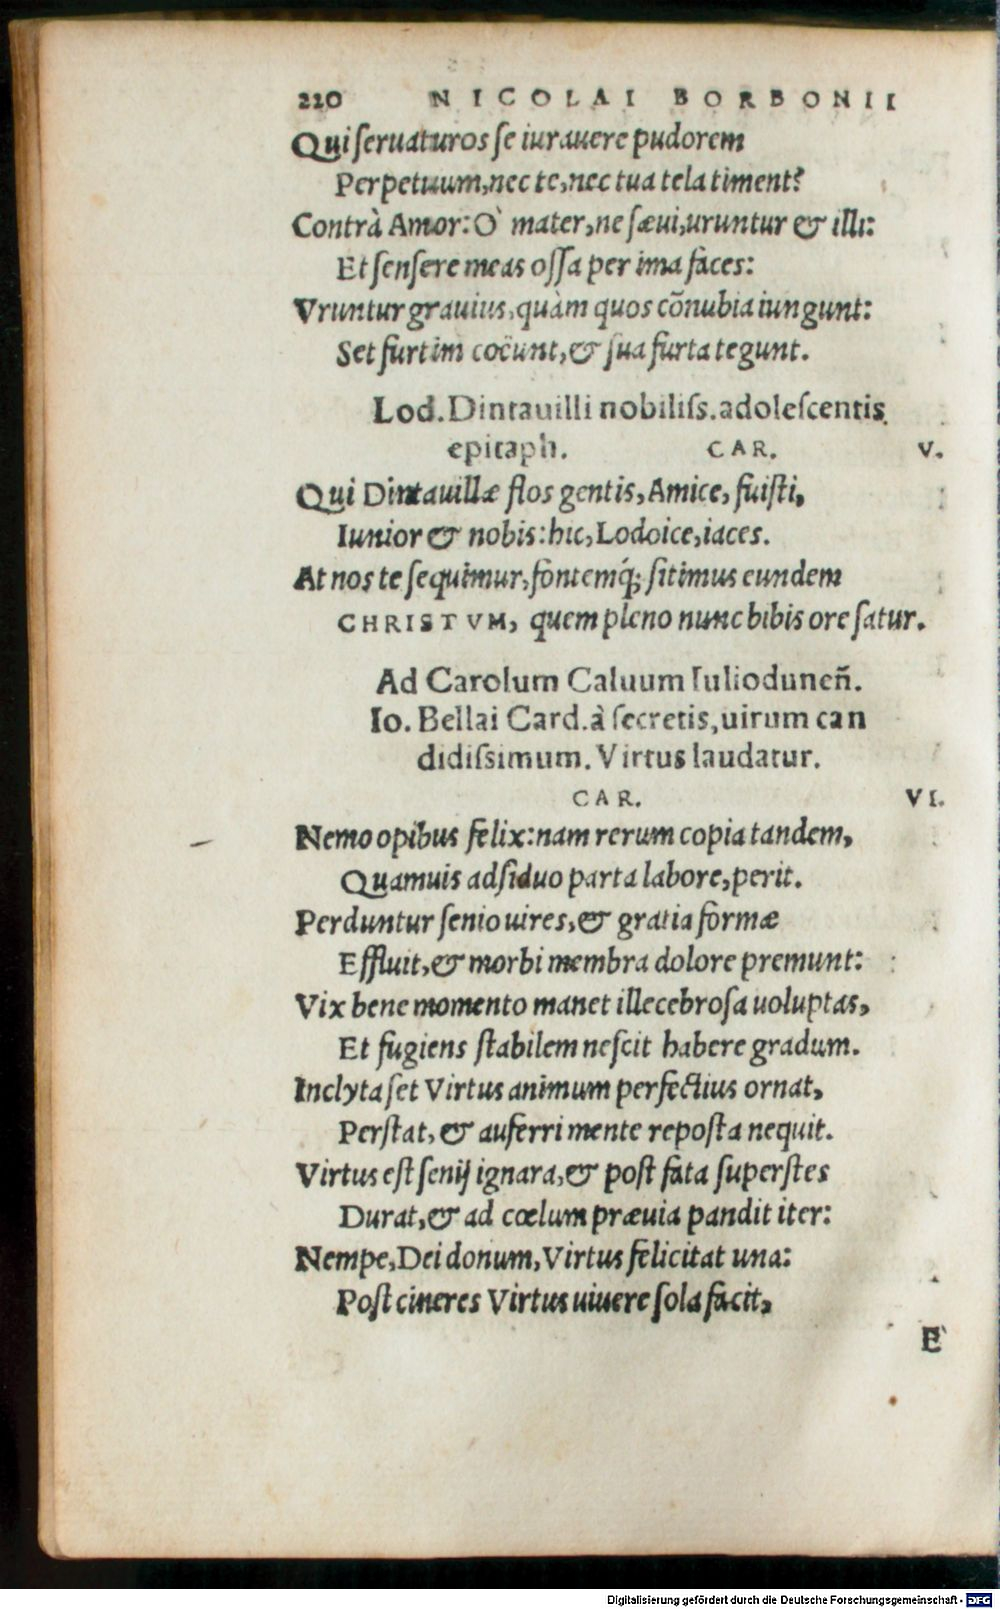 220 NICOLAI BORBONII
Qui ſeruaturos ſe iurauere pudorem
Perpetuum, nec te, nec tua tela timent?
Contrà Amor: Ò mater, ne ſæui, uruntur & illi:
Et ſenſere meas oſſa per ima faces:
Vruntur grauius, quàm quos cõnubia iungunt:
Set furtim coëunt, & ſua furta tegunt.
Lod. Dintauilli nobiliſs. adoleſcentis
epitaph. CAR. V.
Qui Dintauillæ flos gentis, Amice, fuiſti,
Iunior & nobis: hic, Lodoice, iaces.
At nos te ſequimur, fontemq́; ſitimus eundem
CHRISTVM, quem pleno nunc bibis ore ſatur.
Ad Carolum Caluum Iulioduneñ.
Io. Bellai Card. à ſecretis, uirum can
didiſsimum. Virtus laudatur.
CAR. VI.
Nemo opibus felix: nam rerum copia tandem,
Quamuis adſiduo parta labore, perit.
Perduntur ſenio uires, & gratia formæ
Effluit, & morbi membra dolore premunt:
Vix bene momento manet illecebroſa uoluptas,
Et fugiens ſtabilem neſcit habere gradum.
Inclyta ſet Virtus animum perfectius ornat,
Perſtat, & auferri mente repoſta nequit.
Virtus eſt ſenij ignara, & poſt fata ſuperſtes
Durat, & ad cœlum præuia pandit iter:
Nempe, Dei donum, Virtus felicitat una:
Poſt cineres Virtus uiuere ſola facit,
E
Digitalisierung gefördert durch die Deutsche Forschungsgemeinschaft - DFG